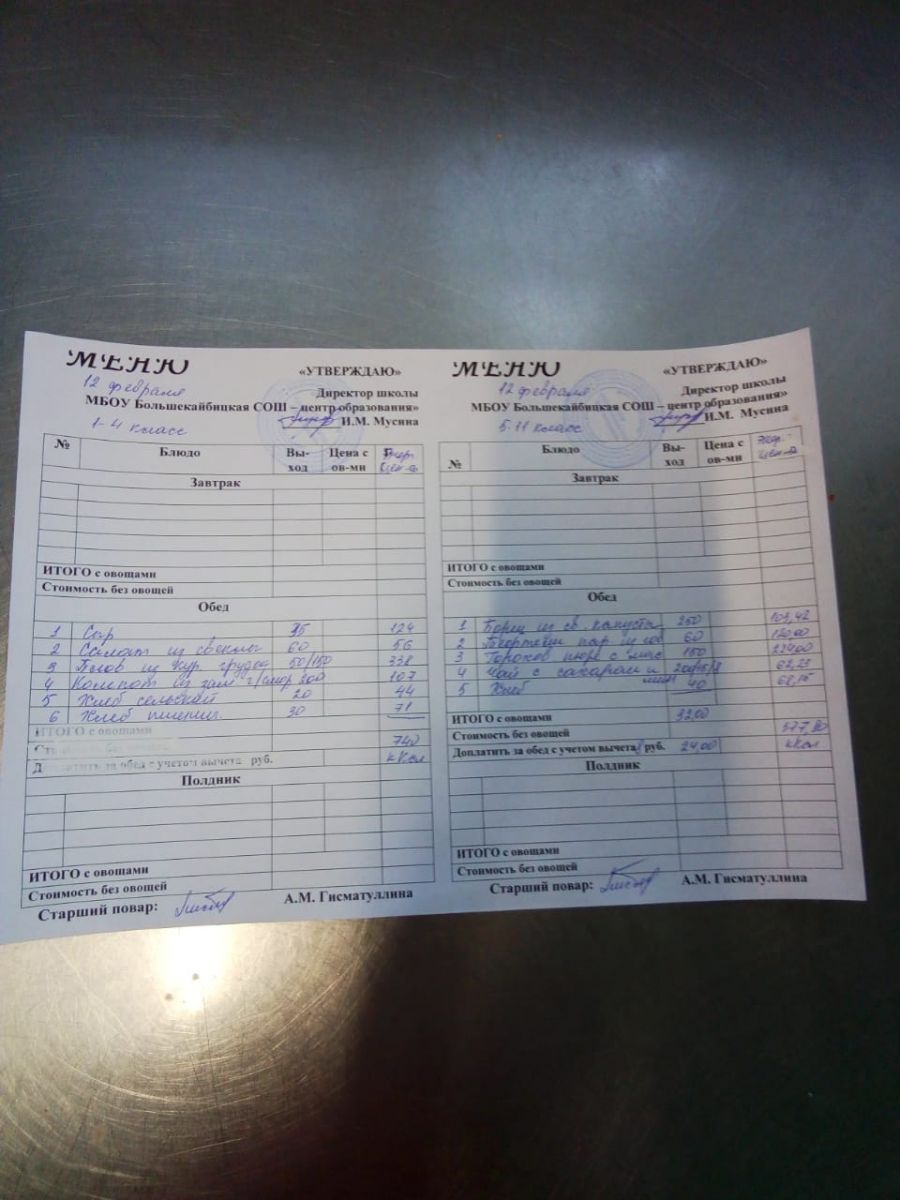 МЕНЮ
«УТВЕРЖДАЮ»
12 февраля
Директор школы
МБОУ Большекайбицкая СОШ – центр образования»
И.М. Мусина
1-4 класс
№ Блюдо Вы-ход Цена с ов-ми Энер. цен-а
Завтрак
ИТОГО с овощами
Стоимость без овощей
Обед
1 Сыр 35 124
2 Салат из свеклы 60 56
3 Плов из кур. грудок 50/150 338
4 Компот из зам 200 107
5 Хлеб сельский 20 44
6 Хлеб пшенич. 30 71
ИТОГО с овощами
Стоимость без овощей 740
Доплатить за обед с учетом вычета руб. кКал
Полдник
ИТОГО с овощами
Стоимость без овощей
Старший повар: А.М. Гисматуллина
МЕНЮ
«УТВЕРЖДАЮ»
12 февраля
Директор школы
МБОУ Большекайбицкая СОШ – центр образования»
И.М. Мусина
5-11 класс
№ Блюдо Вы-ход Цена с ов-ми Энер. цен-а
Завтрак
ИТОГО с овощами
Стоимость без овощей
Обед
1 Борщ из св. капусты 250 103,42
2 пар из 60 120,00
3 Горохов пюре с мас 150 224,00
4 Чай с сахаром и 62,23
5 Хлеб 40 68,15
ИТОГО с овощами 32,00
Стоимость без овощей 577,80
Доплатить за обед с учетом вычета руб. 24,00 кКал
Полдник
ИТОГО с овощами
Стоимость без овощей
Старший повар: А.М. Гисматуллина